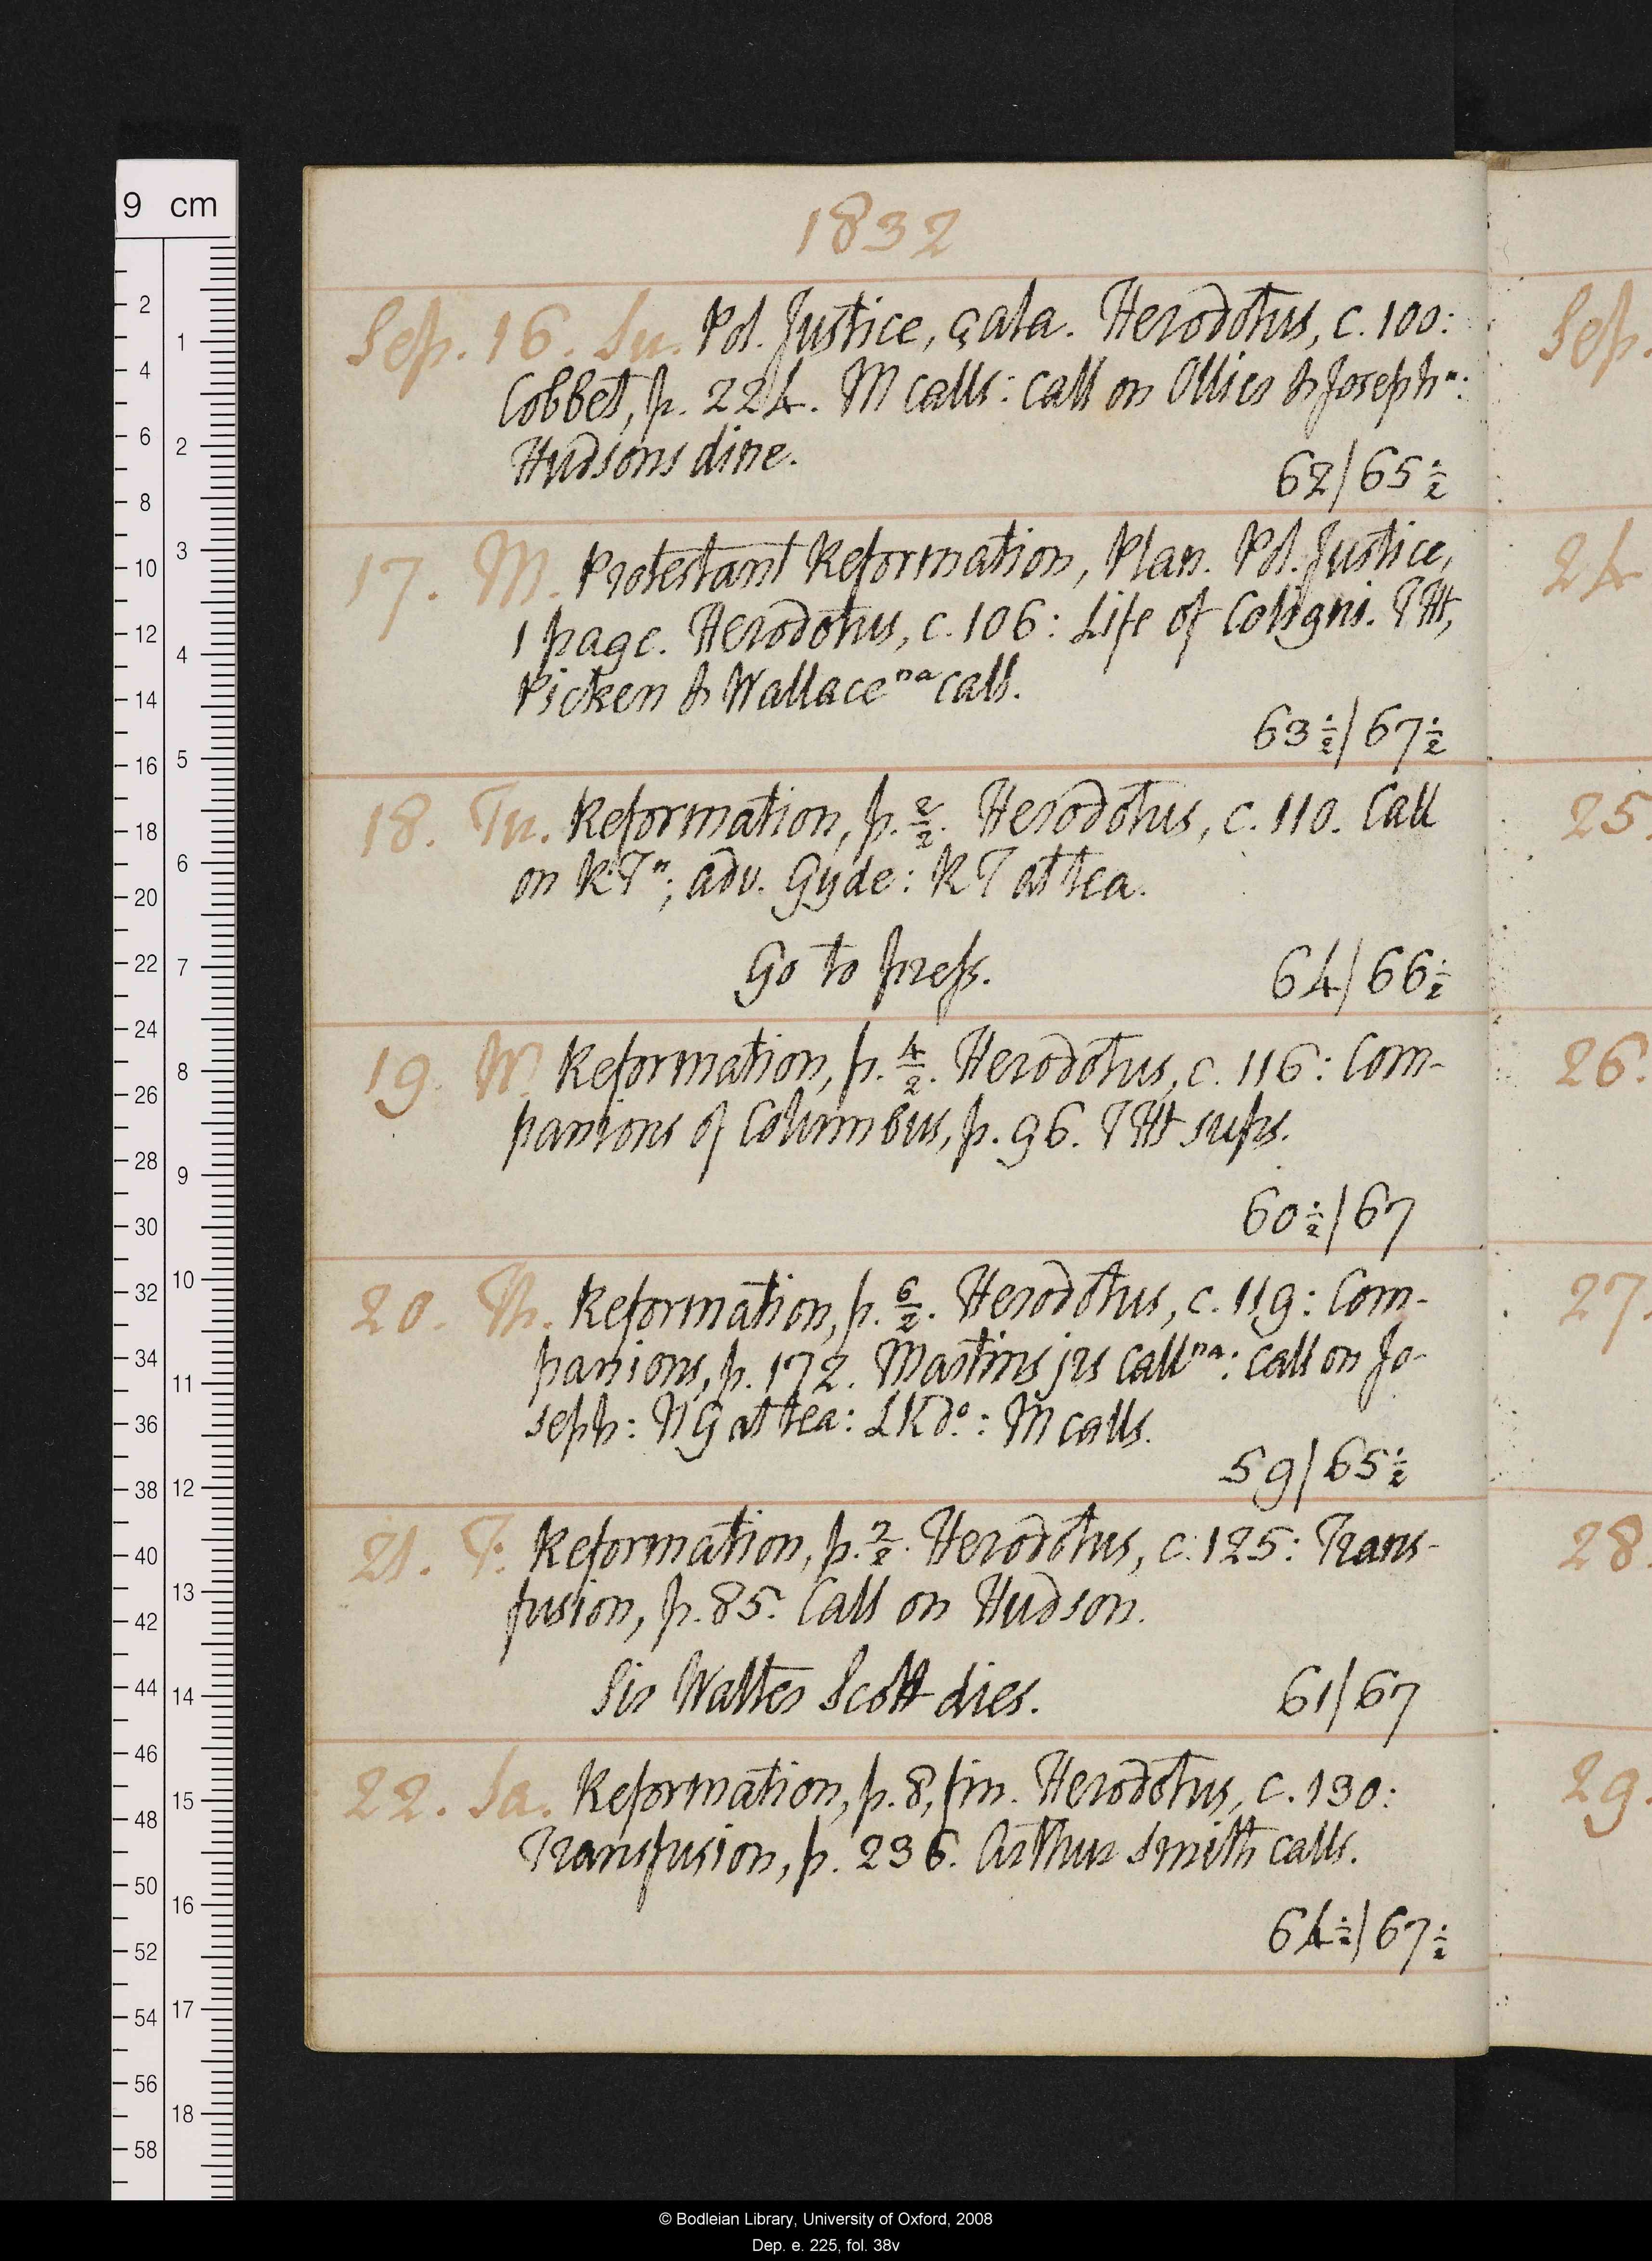 1832
Sep. 16. Su. Pol. Justice, çala. Herodotus, c. 100:
Cobbet, p. 224. M calls: call on Ollier & Joseph n:
Hudsons dine.
62/65½
17. M. Protestant Reformation, Plan. Pol. Justice,
1 page. Herodotus, c. 106: Life of Coligni. THt,
Picken & Wallace na call.
63½/67½
18. Tu. Reformation, p. 2/2. Herodotus, c. 110. Call
on RT n; adv. Gyde: RT at tea.
Go to press. 64/66½
19. W. Reformation, p. 4/2. Herodotus, c. 116: Com-
panions of Columbus, p. 96. THt sups.
60½/67
20. Th. Reformation, p. 6/2. Herodotus, c. 119: Com-
panions, p. 172. Martins jrs call na: call on Jo-
seph: NG at tea: LK do.: M calls.
59/65½
21. F. Reformation, p. 7/2. Herodotus, c. 125: Trans-
fusion, p. 85. Call on Hudson.
Sir Walter Scott dies. 61/67
22. Sa. Reformation, p. 8, fin. Herodotus, c. 130:
Transfusion, p. 236. Arthur Smith calls.
64½/67½
Sep.
24
25.
26.
27.
28.
29.
9 cm
© Bodleian Library, University of Oxford, 2008
Dep. e. 225, fol. 38v